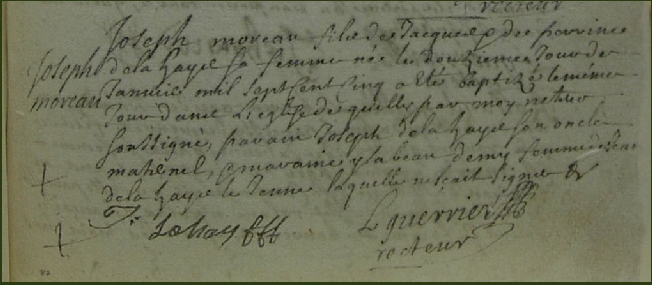 recteur
Joseph moreau fils de Jacques & de perrinne
Joseph moreau
de la haye sa femme née le douzieme Jour de
Janvier mil sept cent cinq a étés baptizé le même
Jour dans L'eglise par moy
soussigné, parain Joseph de la haye son oncle
maternel, & maraine ysabeau demy femme de Jean
de la haye le Jeune laquelle ne scait signer
J: Lahay
Lguerrier
recteur